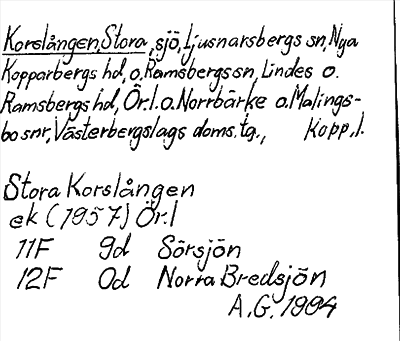 Korslången, Stora, sjö, Ljusnarsbergs sn, Nya
Kopparbergs hd, o. Ramsbergs sn, Lindes o.
Ramsbergs hd, Ör. l. o. Norrbärke o. Malings-
bo snr, Västerbergslags doms. tg., Kopp. l.
Stora Korslången
ek (1957) Ör. l
11F 9d Sörsjön
12F 0d Norra Bredsjön
A. G. 1994